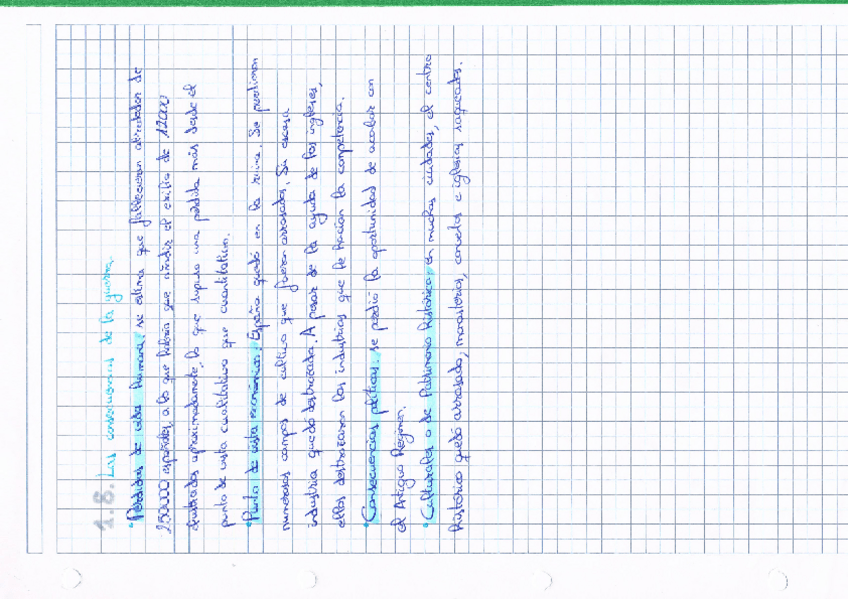 1.8. Las consecuencias de la guerra.
*Pérdidas de vida humana: se estima que fallecieron alrededor de
250000 españoles, a lo que habría que añadir el exilio de 12000
ilustrados aproximadamente, lo que supuso una pérdida más desde el
punto de vista cualitativo que cuantitativo.
*Punto de vista económico: España quedó en la ruina. Se perdieron
numerosos campos de cultivo que fueron arrasados. Su escasa
industria quedó destrozada. A pesar de la ayuda de los ingleses,
ellos destrozaron las industrias que le hacían la competencia.
*Consecuencias políticas: se perdió la oportunidad de acabar con
el Antiguo Régimen.
*Culturales o de Patrimonio histórico: en muchas ciudades, el centro
histórico quedó arrasado, monasterios, conventos e iglesias saqueados.